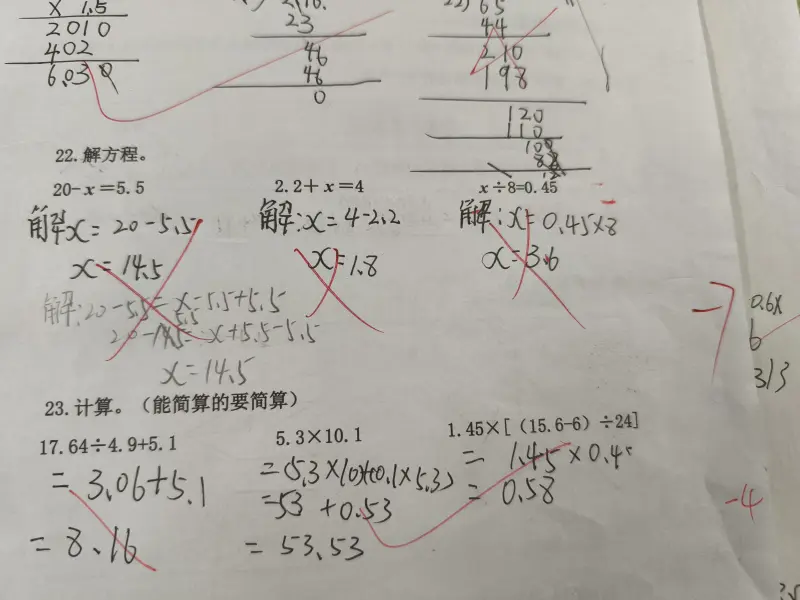 × 1.5
2010
402
6.030
23
46
46
0
65
44
210
198
120
110
100
88
12
22.解方程。
20-x=5.5
2.2+x=4
x÷8=0.45
解x=20-5.5
x=14.5
解:x=4-2.2
x=1.8
解:x=0.45×8
x=3.6
解:20-5.5=x-5.5+5.5
x=14.5
-7
0.6x
6
313
23.计算。(能简算的要简算)
17.64÷4.9+5.1
=3.06+5.1
=8.16
5.3×10.1
=(5.3×10)+(0.1×5.3)
=53+0.53
=53.53
1.45×[(15.6-6)÷24]
=1.45×0.4
=0.58
-4